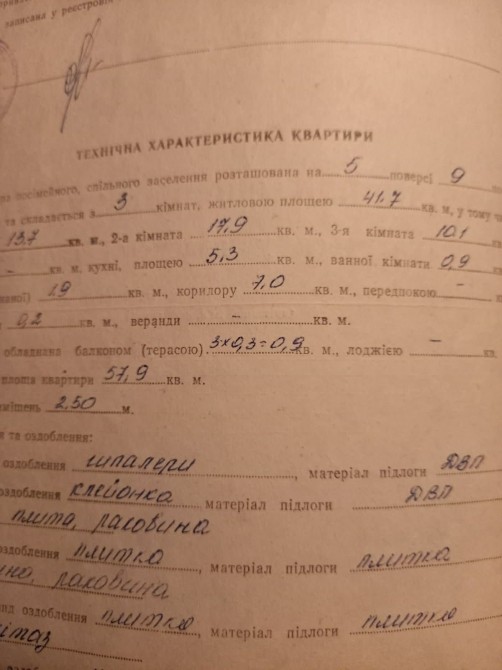 записана у реєстрові
ТЕХНІЧНА ХАРАКТЕРИСТИКА КВАРТИРИ
посімейного, спільного заселення розташована на 5 поверсі 9
та складається з 3 кімнат, житловою площею 41.7 кв. м, у тому
13.7 кв. м., 2-а кімната 17,9 кв. м., 3-я кімната 10.1
- кв. м, кухні, площею 5,3 кв. м., ванної кімнати 0,9
1.9 кв. м., корилору 7,0 кв. м., передпокою -
0,2 кв. м., веранди - кв. м.
обладнана балконом (терасою) 3×0,3=0,9 кв. м., лоджією - кв.
площа квартири 57,9 кв. м.
2,50 м.
та оздоблення:
оздоблення шпалери, матеріал підлоги ДВП
оздоблення клейонка матеріал підлоги ДВП
плита, раковина
оздоблення плитка, матеріал підлоги плитка
раковина
оздоблення плитка, матеріал підлоги плитка